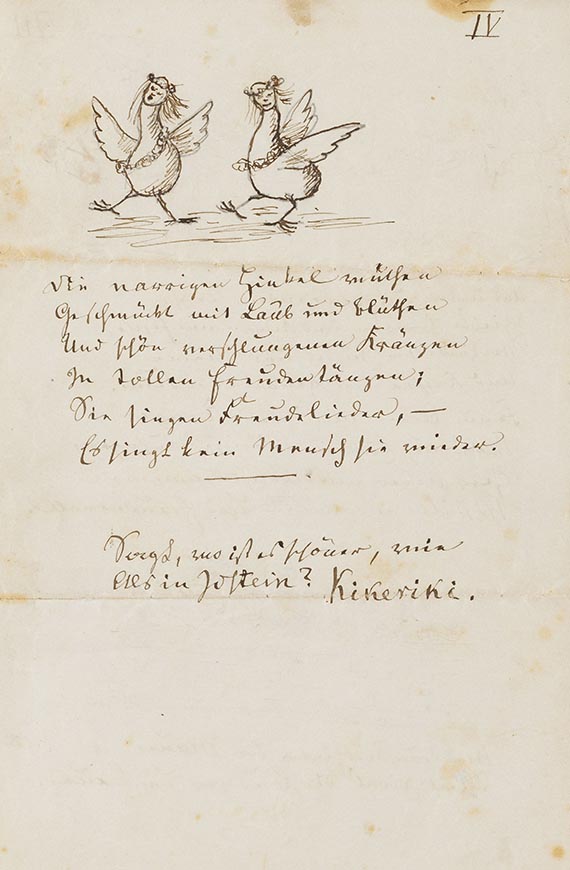 IV
Die narrigen Hinkel wüthen
Geschmückt mit Laub und Blüthen
Und schön verschlungenen Kränzen
In tollen Freudentänzen;
Sie singen Freudelieder, —
Es singt kein Mensch sie nieder.
Sagt, wo ist es schöner, wie
Als in Idstein? Kikeriki.